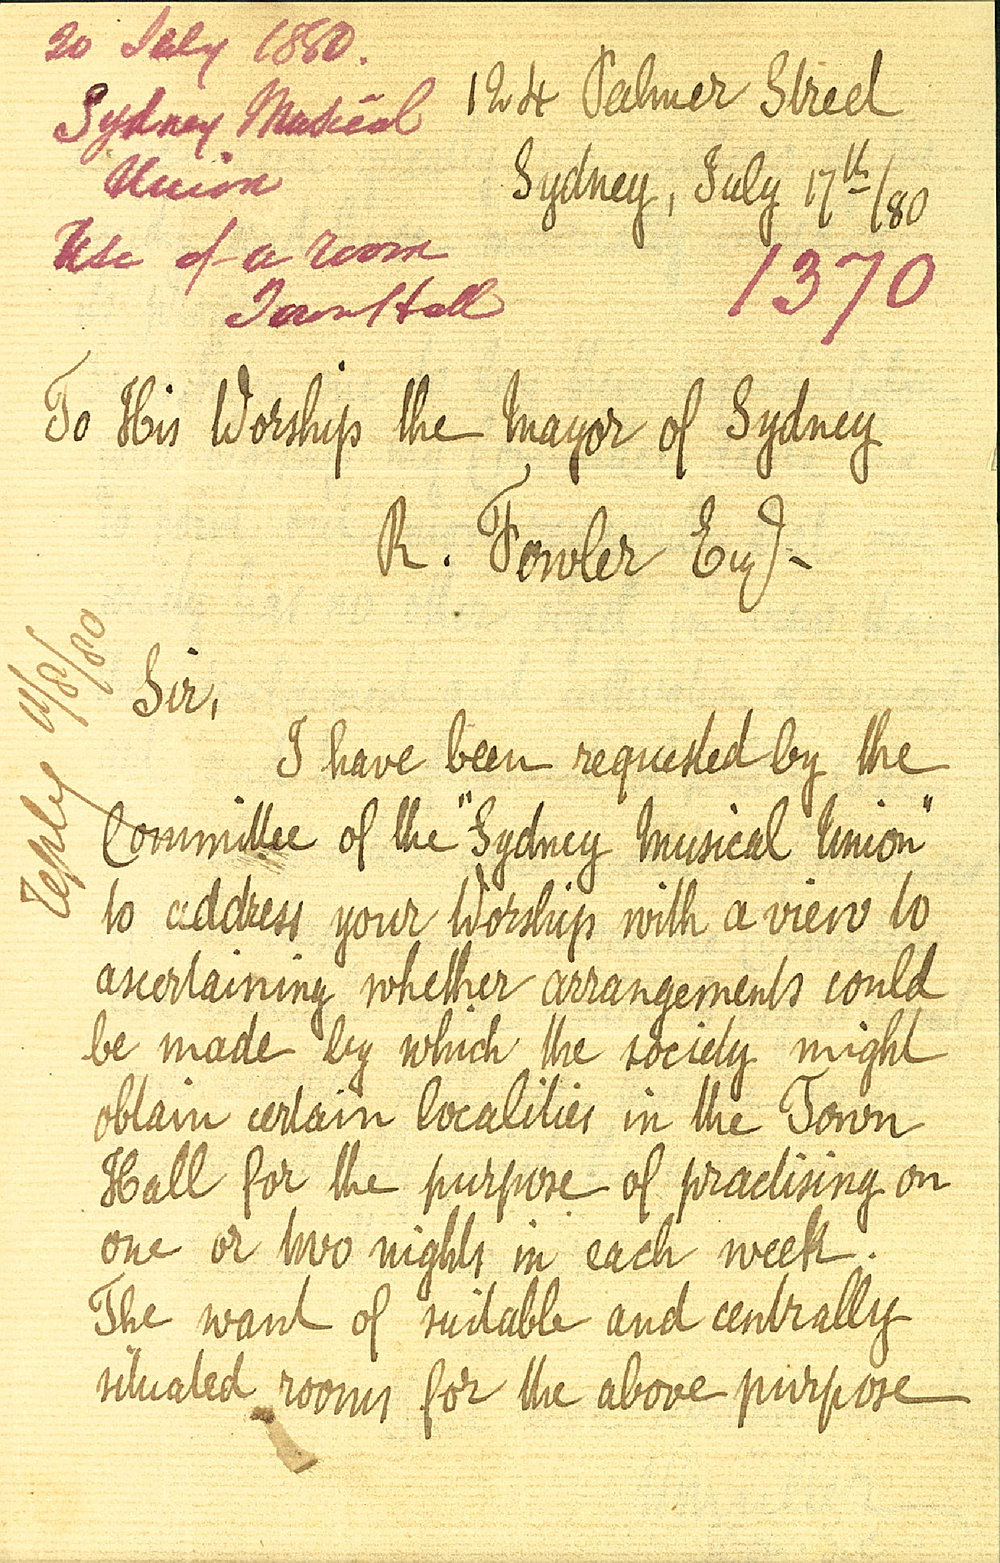 20 July 1880.
Sydney Musical
Union
Use of a room
Town Hall
124 Palmer Street
Sydney, July 17th/80
1370
To His Worship the Mayor of Sydney
R. Fowler Esq.
Reply 11/8/80
Sir,
I have been requested by the
Committee of the "Sydney Musical Union"
to address your Worship with a view to
ascertaining whether arrangements could
be made by which the society might
obtain certain localities in the Town
Hall for the purpose of practising on
one or two nights in each week.
The want of suitable and centrally
situated rooms for the above purpose